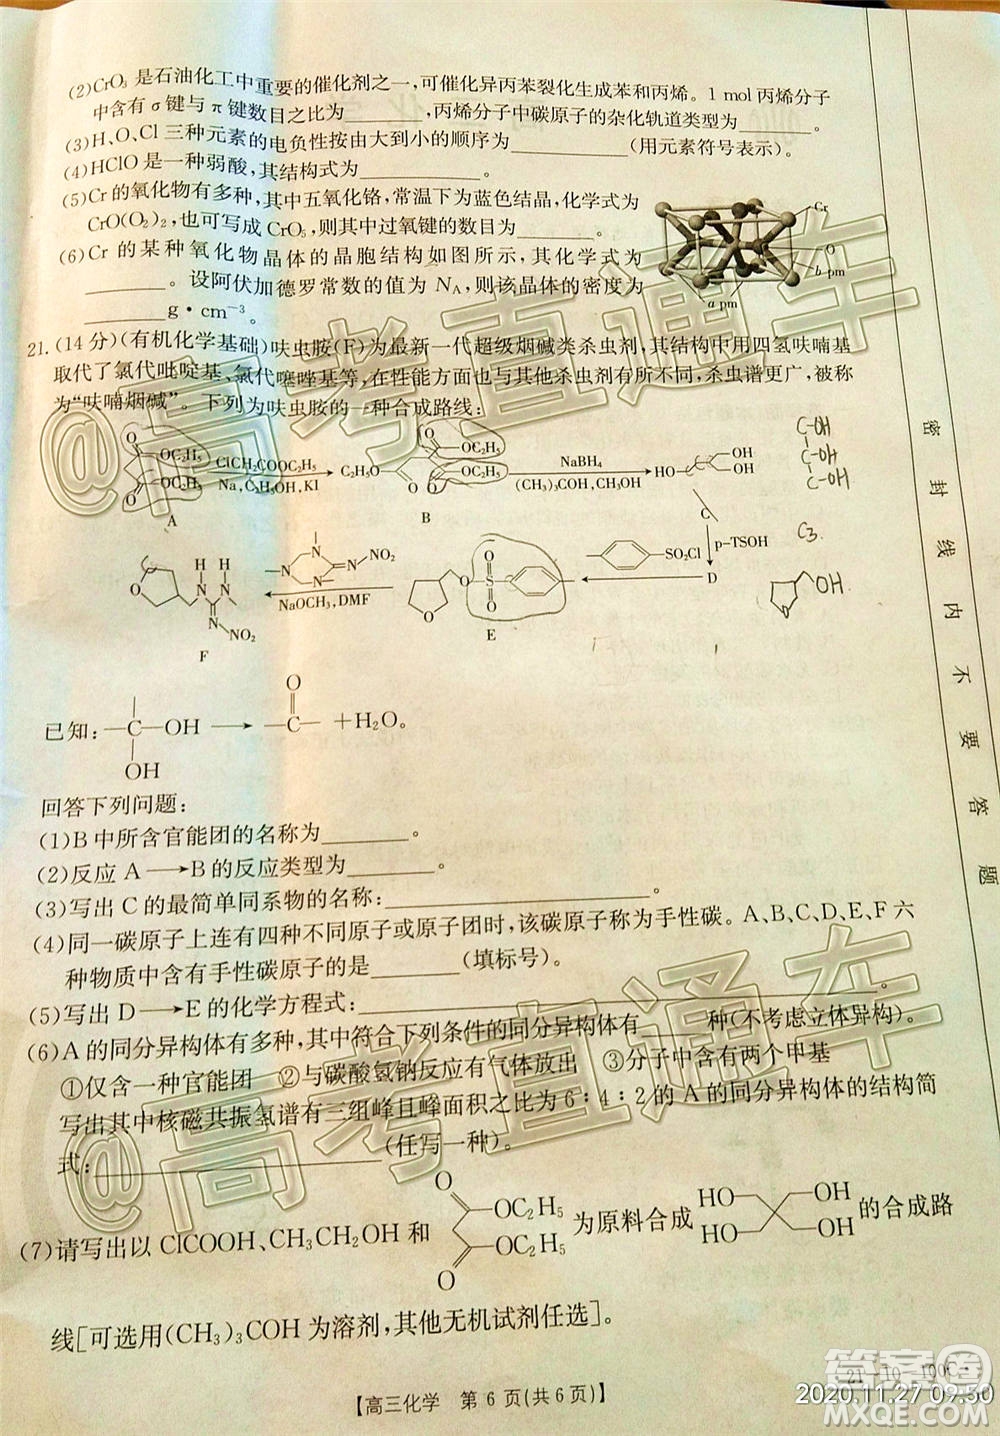 (2)CrO₃ 是石油化工中重要的催化剂之一,可催化异丙苯裂化生成苯和丙烯。1 mol丙烯分子
中含有σ键与π键数目之比为________,丙烯分子中碳原子的杂化轨道类型为________。
(3)H、O、Cl 三种元素的电负性按由大到小顺序为__________(用元素符号表示)。
(4)HClO 是一种弱酸,其结构式为________。
(5)Cr 的氧化物有多种,其中五氧化铬,常温下为蓝色结晶,化学式为
CrO(O₂)₂,也可写成 CrO₅,则其中过氧键的数目为________。
(6)Cr 的某种氧化物晶体的晶胞结构如图所示,其化学式为
________。设阿伏加德罗常数的值为 N_A,则该晶体的密度为
________g·cm⁻³。
Cr
O
b pm
a pm
21.(14分)(有机化学基础)呋虫胺(F)为最新一代超级烟碱类杀虫剂,其结构中用四氢呋喃基
取代了氯代吡啶基、氯代噻唑基等,在性能方面也与其他杀虫剂有所不同,杀虫谱更广,被称
为“呋喃烟碱”。下列为呋虫胺的一种合成路线:
O OC₂H₅ OC₂H₅ O A
ClCH₂COOC₂H₅
Na,C₂H₅OH,KI
C₂H₅O O O OC₂H₅ OC₂H₅ O B
NaBH₄
(CH₃)₃COH,CH₃OH
HO OH OH
C
C-OH
C-OH
C-OH
C3
p-TSOH
D
OH
O
SO₂Cl
O O S O O E
N N N NO₂
NaOCH₃,DMF
O H N H N N NO₂ F
已知: —C—OH OH → O —C— +H₂O。
回答下列问题:
(1)B中所含官能团的名称为________。
(2)反应 A→B的反应类型为________。
(3)写出 C的最简单同系物的名称:________________________。
(4)同一碳原子上连有四种不同原子或原子团时,该碳原子称为手性碳。A、B、C、D、E、F 六
种物质中含有手性碳原子的是________(填标号)。
(5)写出 D→E的化学方程式:________________________。
(6)A的同分异构体有多种,其中符合下列条件的同分异构体有______种(不考虑立体异构)。
①仅含一种官能团 ②与碳酸氢钠反应有气体放出 ③分子中含有两个甲基
写出其中核磁共振氢谱有三组峰且峰面积之比为6∶4∶2的 A 的同分异构体的结构简
式:________________________(任写一种)。
(7)请写出以 ClCOOH、CH₃CH₂OH 和 O OC₂H₅ OC₂H₅ O 为原料合成 HO HO OH OH 的合成路
线[可选用(CH₃)₃COH 为溶剂,其他无机试剂任选]。
【高三化学 第 6 页(共 6 页)】
密封线内不要答题
@高考直通车
@高考直通车
答案圈
MXQE.COM
2020.11.27 09:50